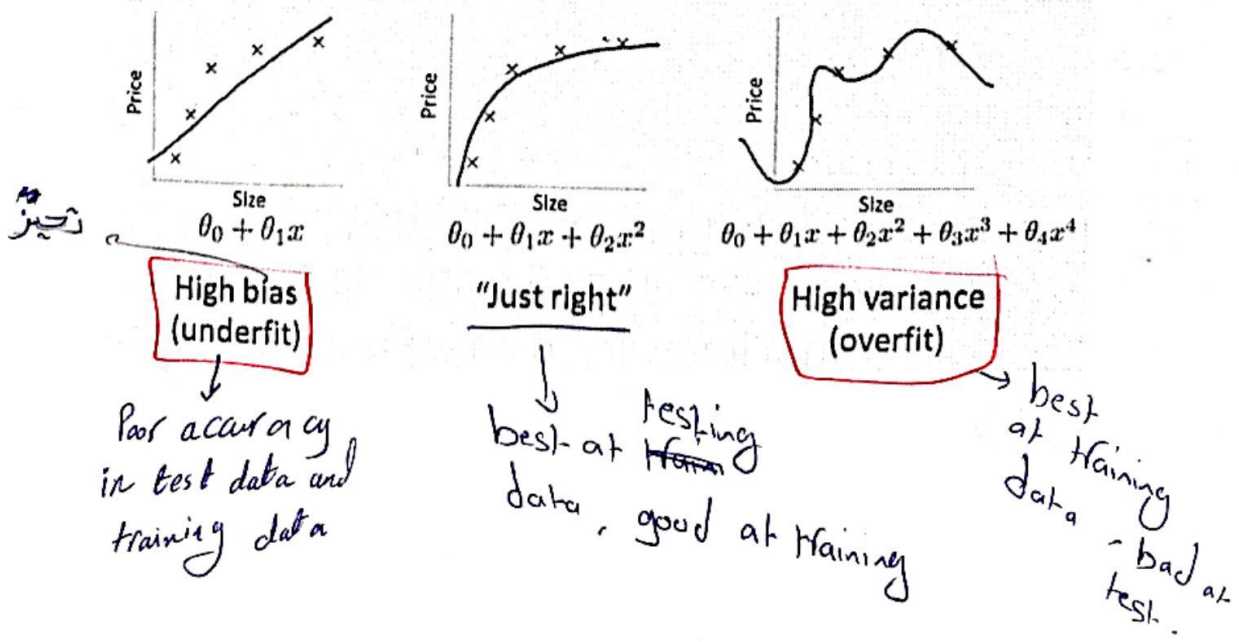 Price
Size
θ₀ + θ₁x
High bias
(underfit)
تحيز
Poor accuracy
in test data and
training data
Price
Size
θ₀ + θ₁x + θ₂x²
"Just right"
best at testing
data, good at training
Price
Size
θ₀ + θ₁x + θ₂x² + θ₃x³ + θ₄x⁴
High variance
(overfit)
best
at training
data
- bad at
test.